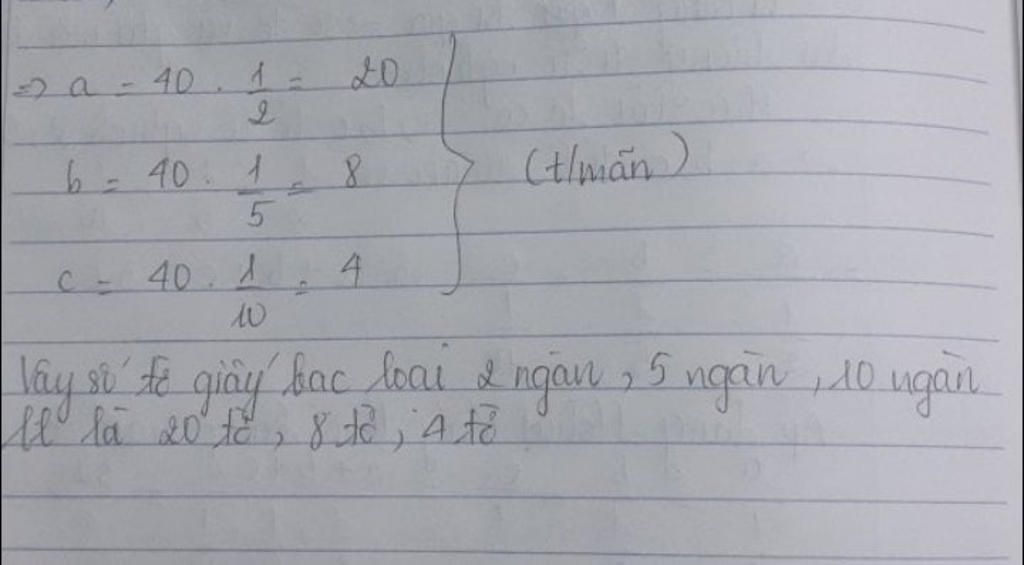 => a = 40 . 1/2 = 20
b = 40 . 1/5 = 8
c = 40 . 1/10 = 4
(t/mãn)
Vậy số tờ giấy bạc loại 2 ngàn, 5 ngàn, 10 ngàn
ll là 20 tờ, 8 tờ, 4 tờ